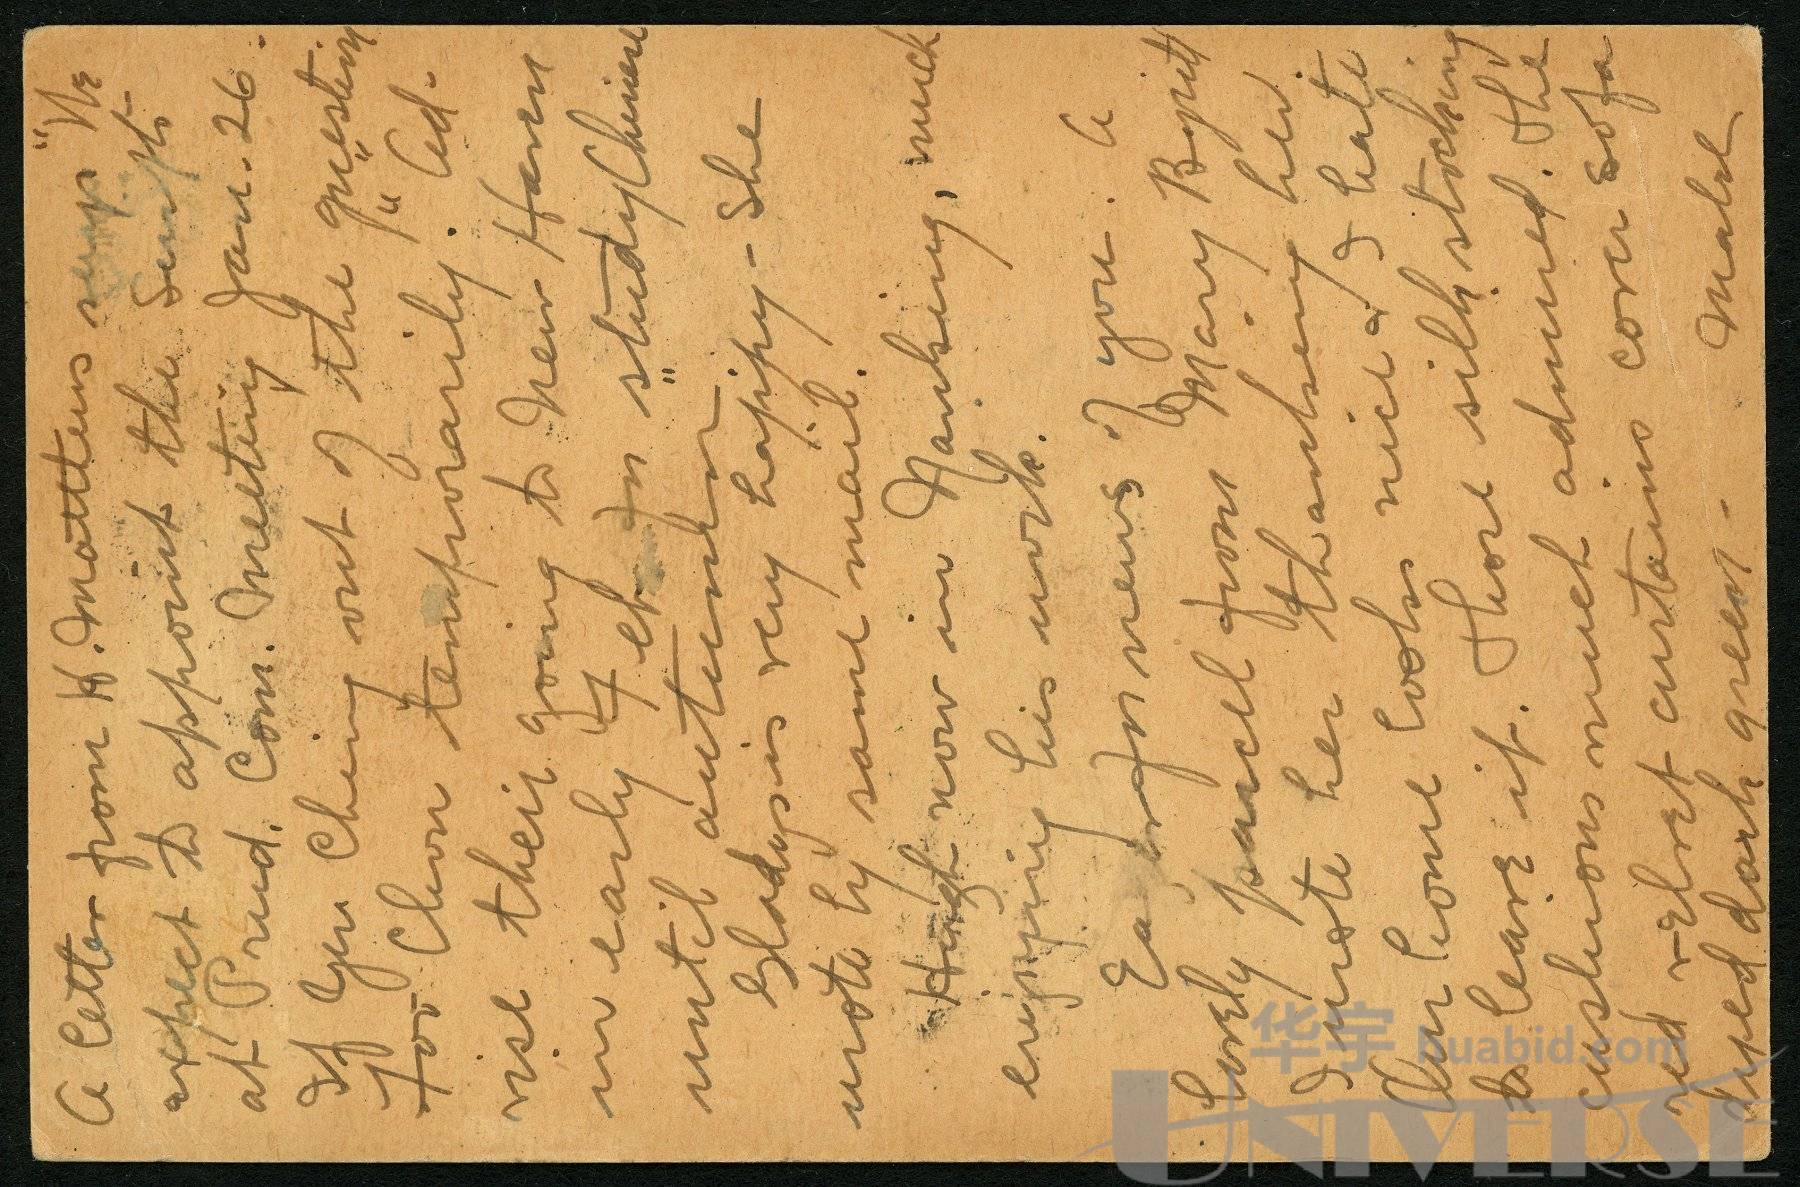 A letter from H. Matthews says "We
expect to appoint the Semple's
at Prud. Com. Meeting Jan. 26.
If Yen Ching out of the question
Foo Chow temporarily. " Ad-
vise their going to New Haven
in early Feb. for study Chinese
until autumn"
Gladys is very happy - She
wrote by same mail.
Hugh now in Nanking, much
enjoying his work.
Eager for news of you. A
lovely parcel from Mary Byrd
I wrote her thanking her.
Our home looks nice & I hate
to leave it. Those silk stocking
cushions much admired. The
red velvet curtains cover sofa
dyed dark green - Mabel
华宇 huabid.com
UNIVERSE